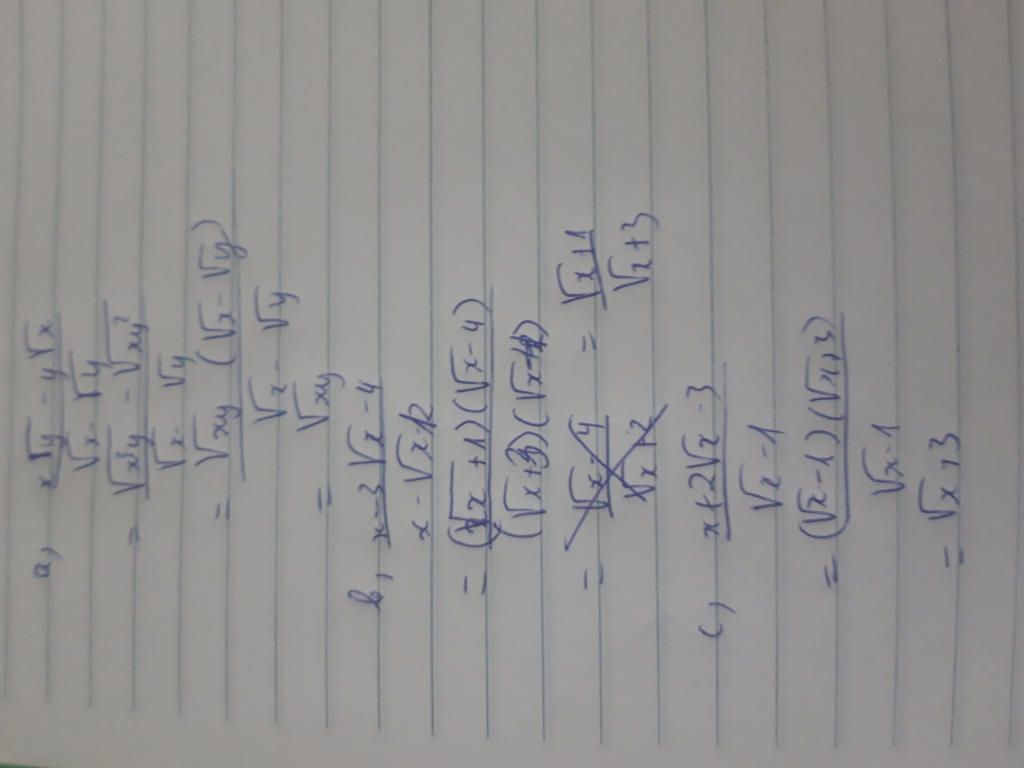 a, x√y - y√x
√x - √y
= √x²y - √xy²
√x - √y
= √xy (√x - √y)
√x - √y
= √xy
b, x - 3√x - 4
x - √x - 12
= (√x + 1)(√x - 4)
(√x + 3)(√x - 4)
= √x - 4 = √x + 1
√x + 2 √x + 3
c, x + 2√x - 3
√x - 1
= (√x - 1)(√x + 3)
√x - 1
= √x + 3